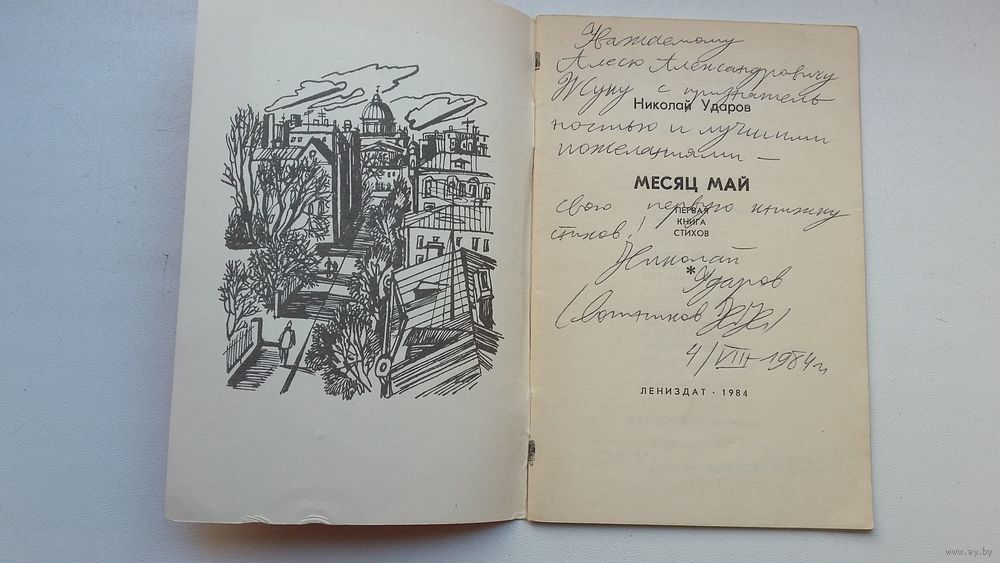 Уважаемому
Алесю Александровичу
Жуку с признатель
Николай Ударов
ностью и лучшими
пожеланиями –
МЕСЯЦ МАЙ
свою первую книжку
ПЕРВАЯ
КНИГА
СТИХОВ
стихов!
Николай
*
Ударов
(Сотников
4/VIII-1984 г.
ЛЕНИЗДАТ · 1984
www.ay.by